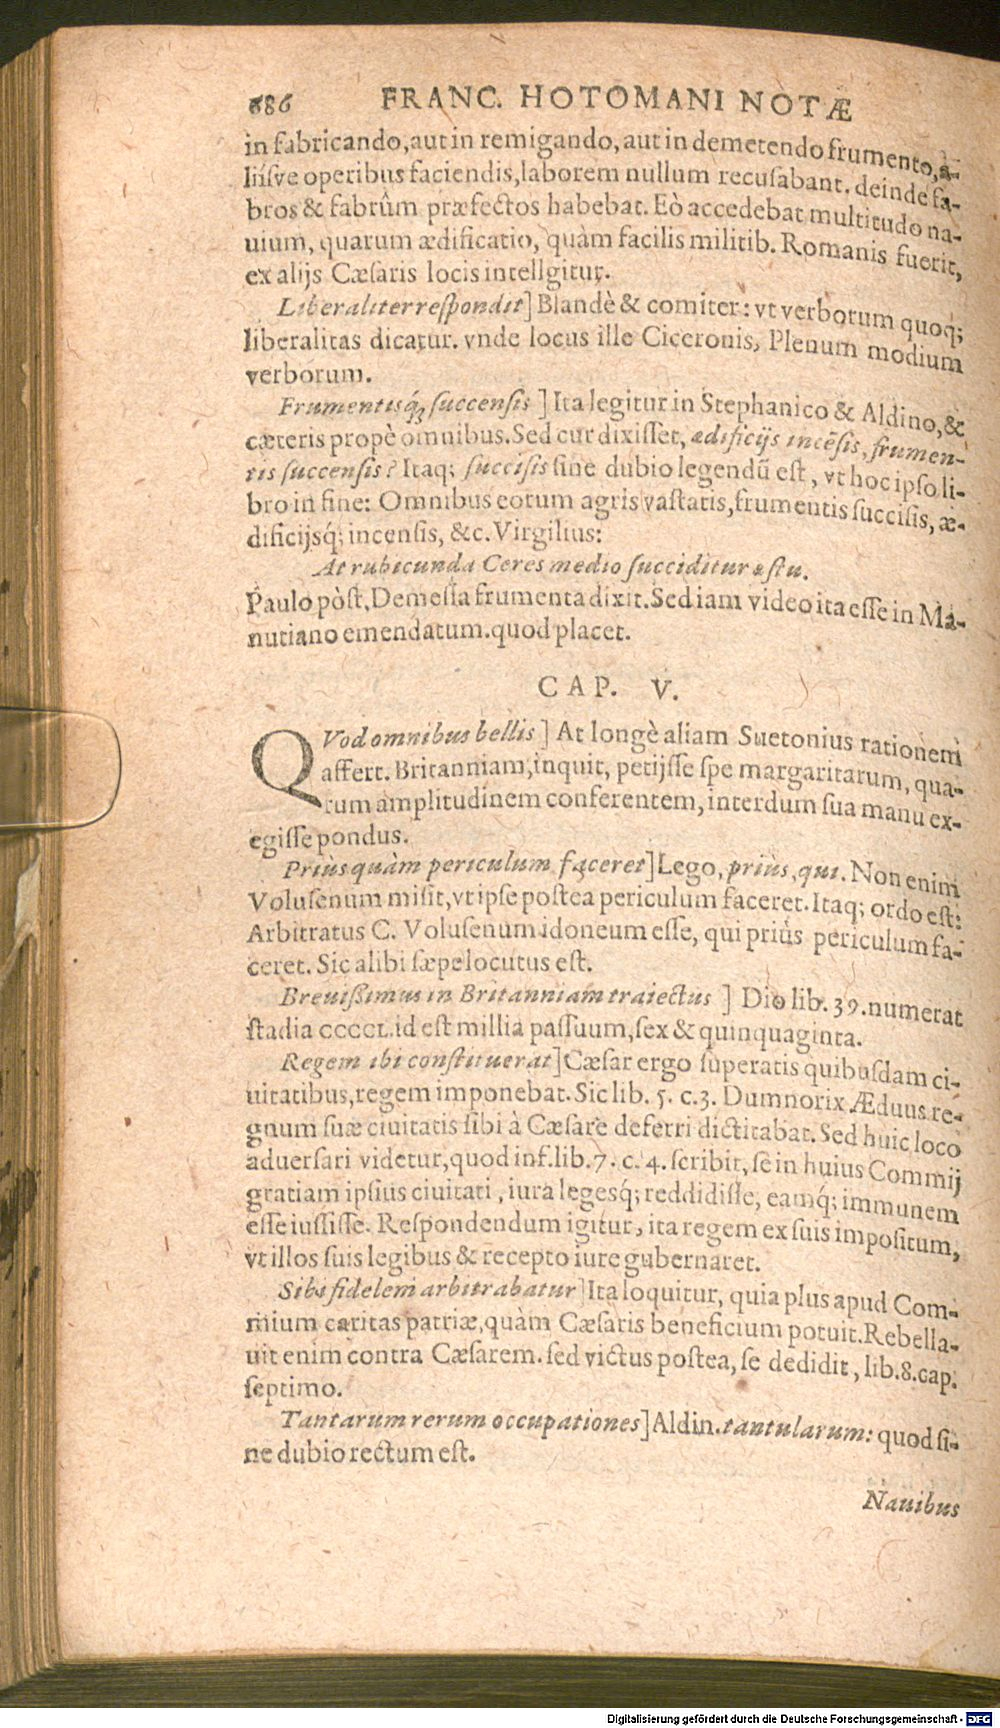 686 FRANC. HOTOMANI NOTÆ
in fabricando, aut in remigando, aut in demetendo frumento, a-
liisve operibus faciendis, laborem nullum recusabant. deinde fa-
bros & fabrûm præfectos habebat. Eò accedebat multitudo na-
uium, quarum ædificatio, quàm facilis militib. Romanis fuerit,
ex alijs Cæsaris locis intellgitur.
Liberaliter respondit] Blandè & comiter: vt verborum quoq;
liberalitas dicatur. vnde locus ille Ciceronis, Plenum modium
verborum.
Frumentisq́; succensis] Ita legitur in Stephanico & Aldino, &
cæteris propè omnibus. Sed cur dixisset, ædificijs incēsis, frumen-
tis succensis? Itaq; succisis sine dubio legendū est, vt hoc ipso li-
bro in fine: Omnibus eorum agris vastatis, frumentis succisis, æ-
dificijsq́; incensis, &c. Virgilius:
At rubicunda Ceres medio succiditur æstu.
Paulo pòst, Demessa frumenta dixit. Sed iam video ita esse in Ma-
nutiano emendatum. quod placet.
CAP. V.
QVod omnibus bellis] At longè aliam Suetonius rationem
affert. Britanniam, inquit, petijsse spe margaritarum, qua-
rum amplitudinem conferentem, interdum sua manu ex-
egisse pondus.
Priùs quàm periculum faceret] Lego, priùs, qui. Non enim
Volusenum misit, vt ipse postea periculum faceret. Itaq; ordo est:
Arbitratus C. Volusenum idoneum esse, qui priùs periculum fa-
ceret. Sic alibi sæpe locutus est.
Breuissimus in Britanniam traiectus] Dio lib. 39. numerat
stadia CCCCL. id est millia passuum, sex & quinquaginta.
Regem ibi constituerat] Cæsar ergo superatis quibusdam ci-
uitatibus, regem imponebat. Sic lib. 5. c. 3. Dumnorix Æduus re-
gnum suæ ciuitatis sibi à Cæsare deferri dictitabat. Sed huic loco
aduersari videtur, quod inf. lib. 7. c. 4. scribit, se in huius Commij
gratiam ipsius ciuitati, iura legesq́; reddidisse, eamq́; immunem
esse iussisse. Respondendum igitur, ita regem ex suis impositum,
vt illos suis legibus & recepto iure gubernaret.
Sibi fidelem arbitrabatur] Ita loquitur, quia plus apud Com-
mium caritas patriæ, quàm Cæsaris beneficium potuit. Rebella-
uit enim contra Cæsarem. sed victus postea, se dedidit, lib. 8. cap.
septimo.
Tantarum rerum occupationes] Aldin. tantularum: quod si-
ne dubio rectum est.
Nauibus
Digitalisierung gefördert durch die Deutsche Forschungsgemeinschaft - DFG